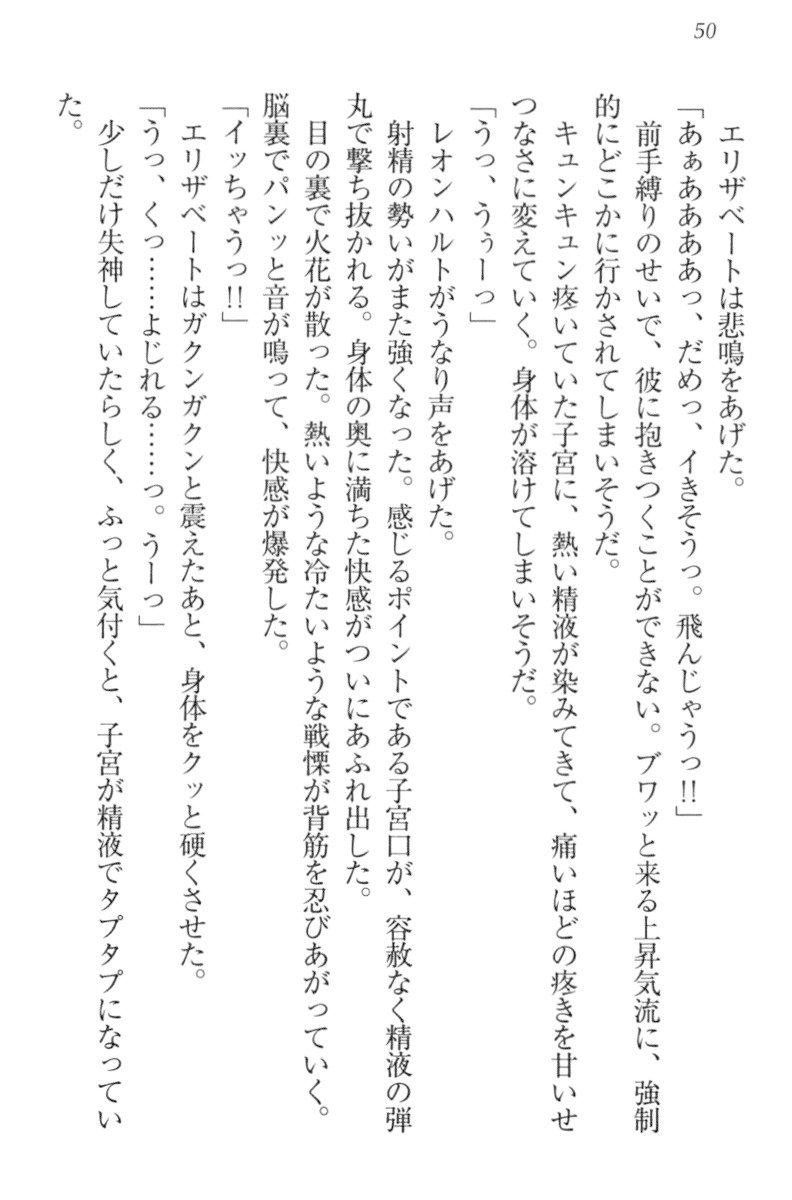 50
エリザベートは悲鳴をあげた。
「あぁああああっ、だめっ、イきそうっ。飛んじゃうっ!!」
前手縛りのせいで、彼に抱きつくことができない。ブワッと来る上昇気流に、強制
的にどこかに行かされてしまいそうだ。
キュンキュン疼いていた子宮に、熱い精液が染みてきて、痛いほどの疼きを甘いせ
つなさに変えていく。身体が溶けてしまいそうだ。
「うっ、うぅーっ」
レオンハルトがうなり声をあげた。
射精の勢いがまた強くなった。感じるポイントである子宮口が、容赦なく精液の弾
丸で撃ち抜かれる。身体の奥に満ちた快感がついにあふれ出した。
目の裏で火花が散った。熱いような冷たいような戦慄が背筋を忍びあがっていく。
脳裏でパンッと音が鳴って、快感が爆発した。
「イッちゃうっ!!」
エリザベートはガクンガクンと震えたあと、身体をクッと硬くさせた。
「うっ、くっ……よじれる……っ。うーっ」
少しだけ失神していたらしく、ふっと気付くと、子宮が精液でタプタプになってい
た。